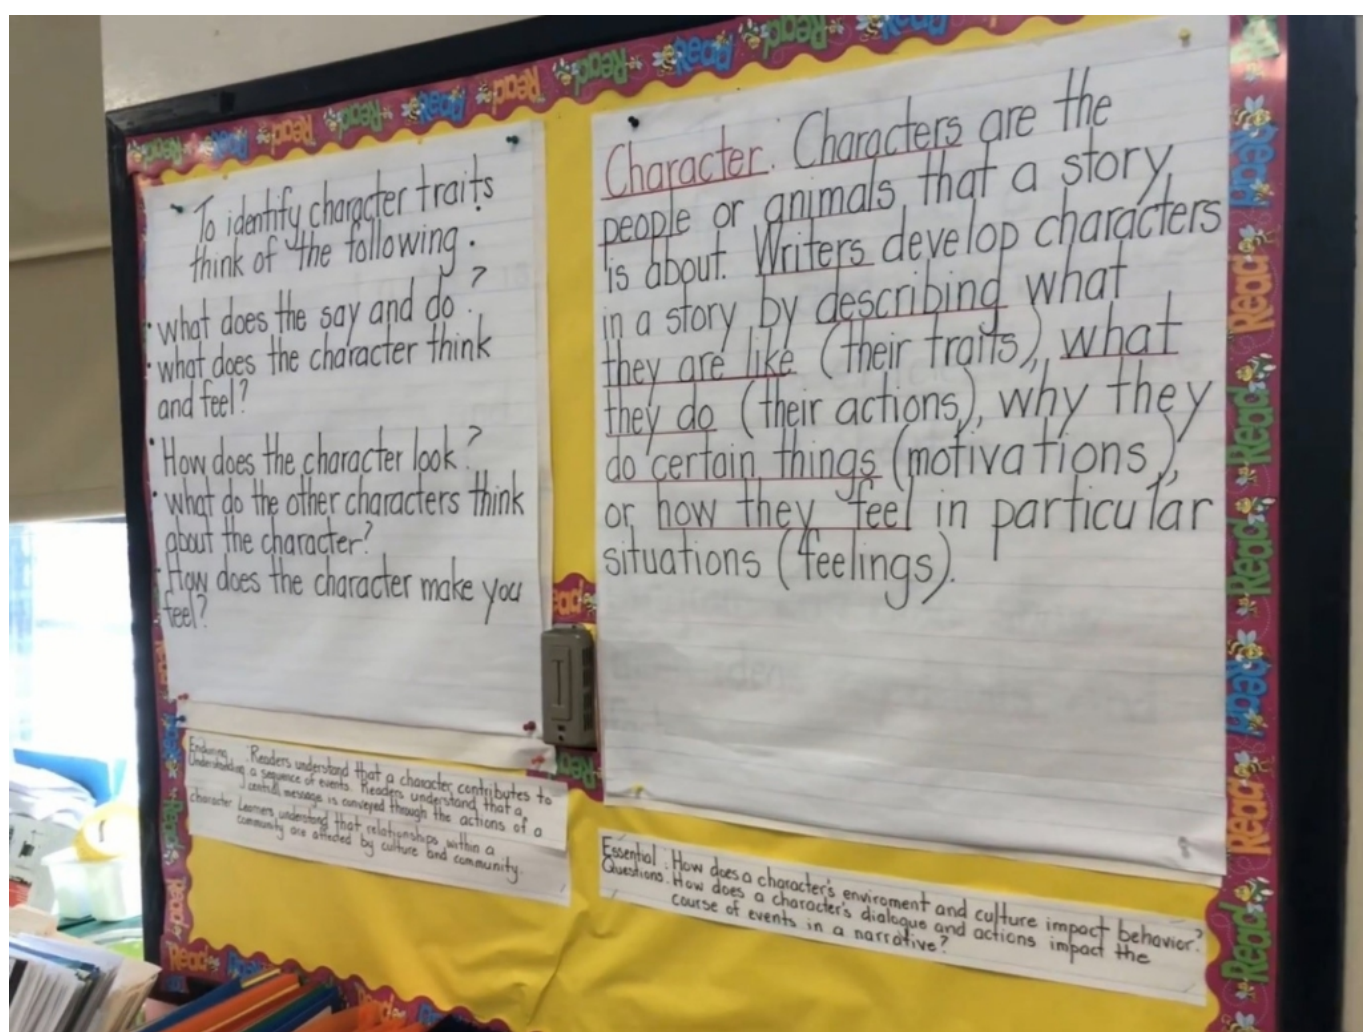 To identify character traits
think of the following.
• what does the say and do?
• what does the character think
and feel?
• How does the character look?
• what do the other characters think
about the character?
• How does the character make you
feel?
Character. Characters are the
people or animals that a story
is about. Writers develop characters
in a story by describing what
they are like (their traits), what
they do (their actions), why they
do certain things (motivations),
or how they feel in particular
situations (feelings).
Enduring : Readers understand that a character contributes to
Understanding a sequence of events. Readers understand that a
central message is conveyed through the actions of a
character Learners understand that relationships within a
community are affected by culture and community.
Essential : How does a character's enviroment and culture impact behavior?
Questions. How does a character's dialogue and actions impact the
course of events in a narrative?
Read Read Read Read Read Read Read Read Read Read
Read
Read
Read
Read
Read
Read
Read
Read